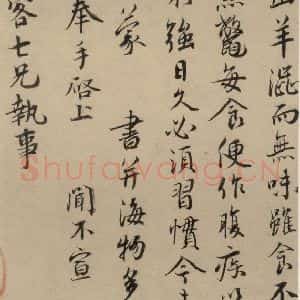 羊澀而無味雖食不
鱉每食便作腹疾
強日久必須習慣今
蒙 書并海物多
奉手啓上 閒不宣
七兄執事
Shufawang.CN